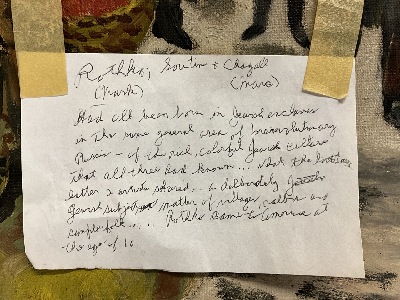 Rothko, Soutine & Chagall
(Mark) (Marc)
Had all been born in Jewish enclaves
in the same general area of prerevolutionary
Russia — of the rich, colorful Jewish culture
that all three had known... what the
latter 2 artists shared... a deliberately Jewish
Jewish subject matter of villages, rabbis and
simple folk..... Rothko came to America at
the age of 10